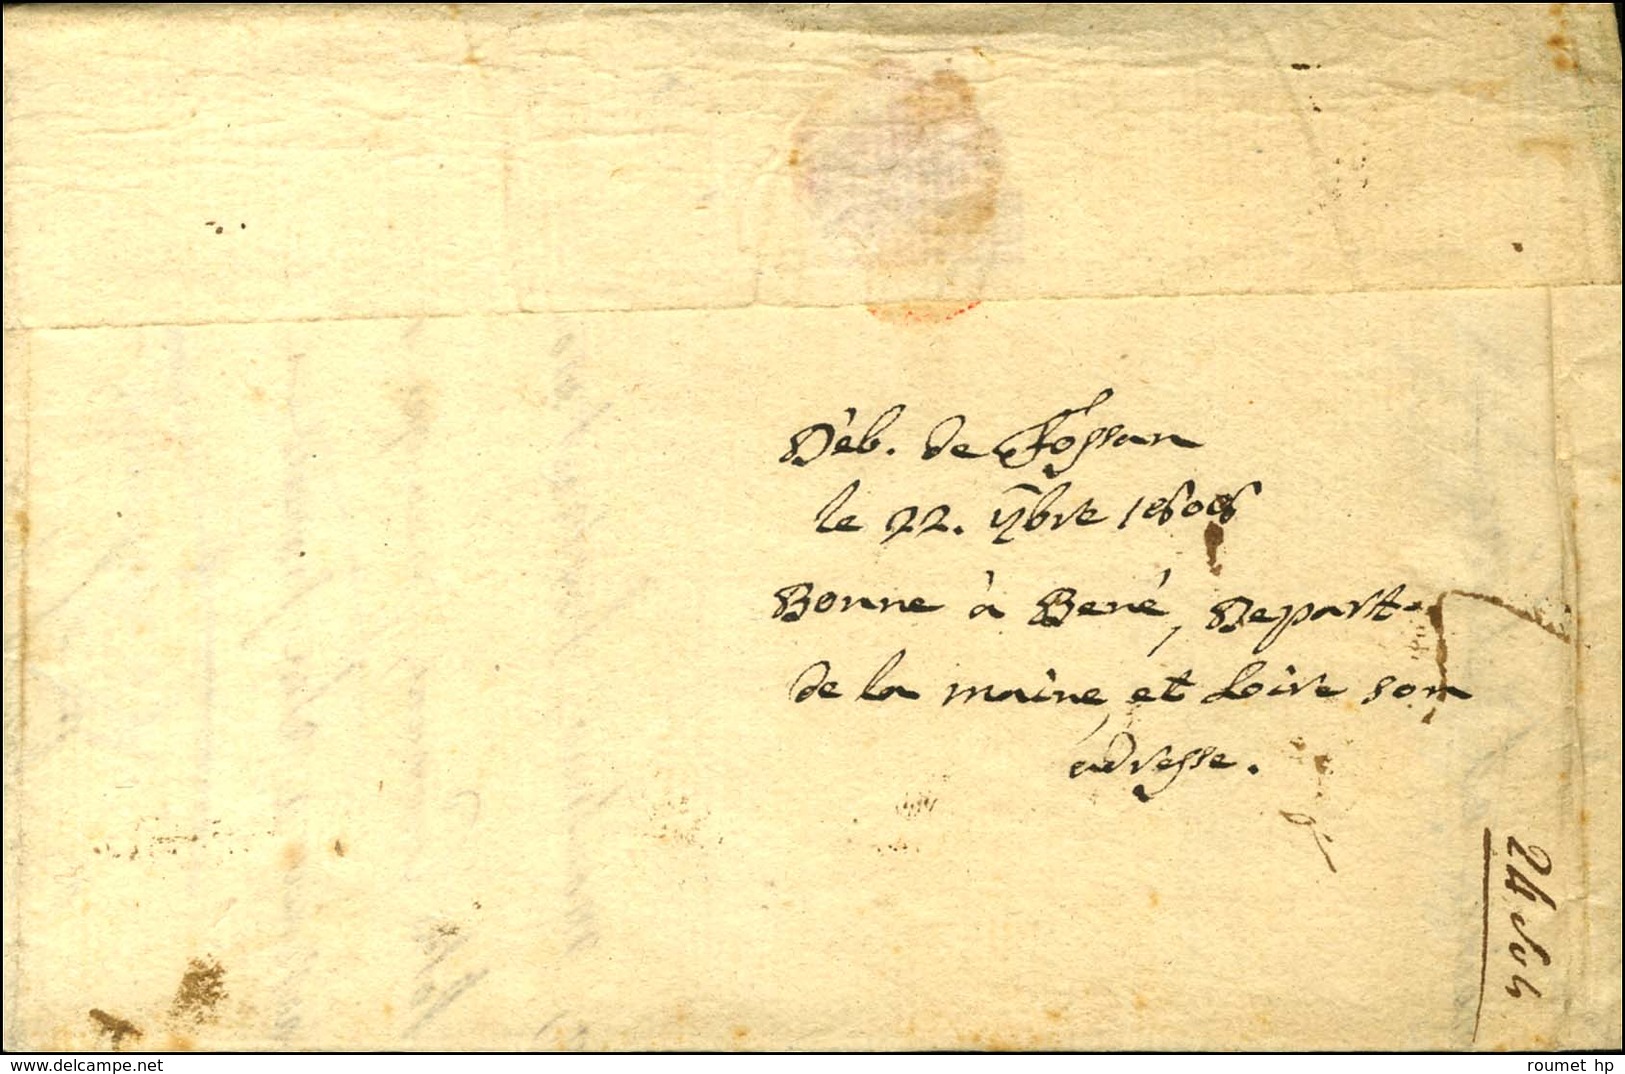 Déb. de Fossan
le 22. 7bre 1806
Bonne à Bené, Depart.
de la maine et Loire son
adresse.
24 Sols
www.delcampe.net
roumet hp